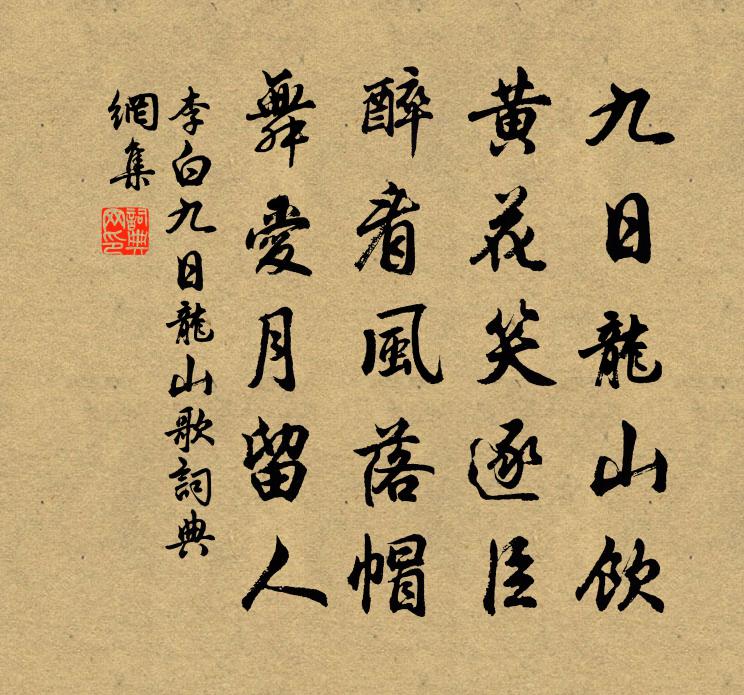 九日龍山飲
黃花笑逐臣
醉看風落帽
舞愛月留人
李白九日龍山歌詞典
網集
詞典
网印